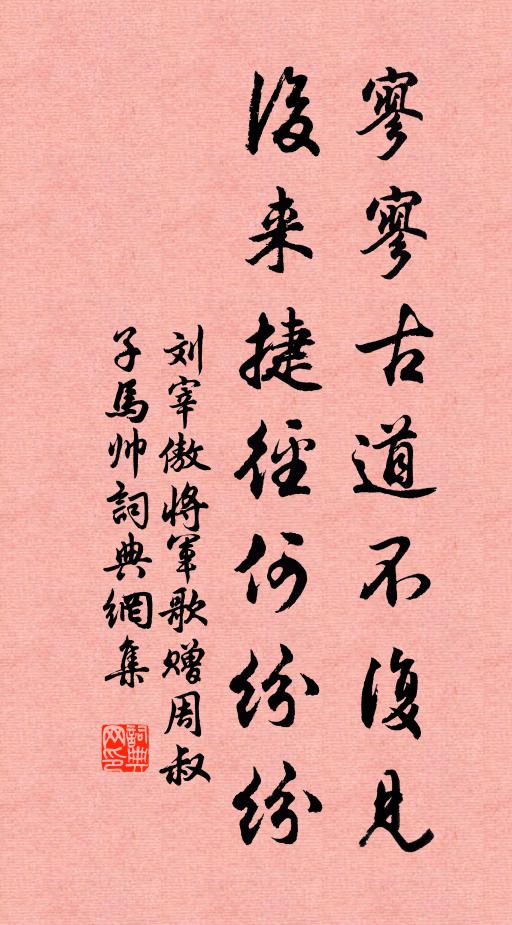 寥寥古道不復見
後来捷徑何紛紛
刘宰傲將軍歌赠周叔
子馬帅詞典網集
詞典网印